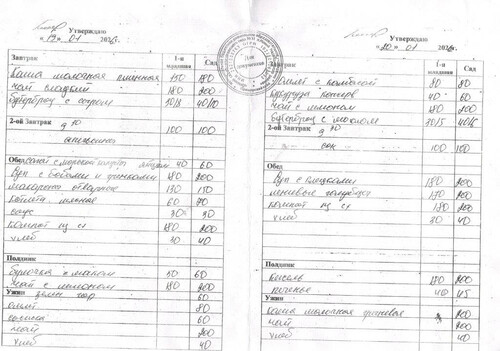 Утверждаю
« 19 » 01 2026г.
Завтрак 1-я младшая Сад
Каша молочная пшенная 150 180
Чай сладкий 180 200
Бутерброд с сыром 30/5 40/10
2-ой Завтрак 9 30
апельсин 100 100
Обед 40 60
Суп с бобами и гренками 180 200
Макароны отварные 130 150
Котлета мясная 60 70
соус 30 30
Компот из сх 180 200
Хлеб 30 40
Полдник
Булочка с маком 50 60
Чай с лимоном 180 200
Ужин зелен гор 60
Омлет 80
60
Чай 200
Хлеб 40
Утверждаю
« 20 » 01 2026г.
Завтрак 1-я младшая Сад
Омлет с колбасой 80 80
Кукуруза консерв 40 60
Чай с лимоном 180 200
Бутерброд с маслом 30/5 40/5
2-ой Завтрак 9 30
сок 100 100
Обед
Суп с клецками 180 200
Ленивые голубцы 170 200
Компот из сх 180 200
Хлеб 30 40
Полдник
Кисель 180 200
Печенье 40 45
Ужин
Каша молочная гречневая 200
Чай 200
Хлеб 40